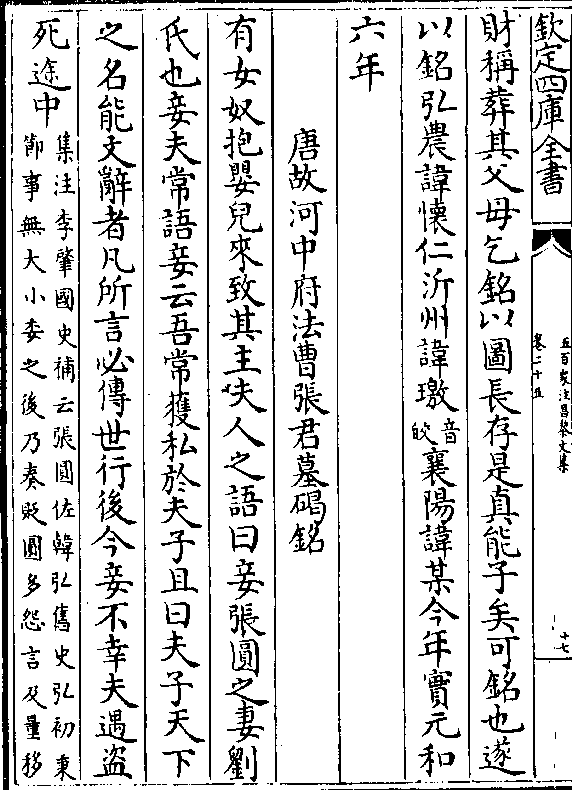 欽定四庫全書
五百家注昌黎文集
卷二十五
十七
財稱葬其父母乞銘以圖長存是真能子矣可銘也遂
以銘弘農諱懷仁沂州諱璬音皎襄陽諱某今年實元和
六年
唐故河中府法曹張君墓碣銘
有女奴抱嬰兒來致其主夫人之語曰妾張圓之妻劉
氏也妾夫常語妾云吾常獲私於夫子且曰夫子天下
之名能文辭者凡所言必傳世行後今妾不幸夫遇盜
死途中集注李肇國史補云張圓佐韓弘舊史弘初秉
節事無大小委之後乃奏貶圓多怨言及量移